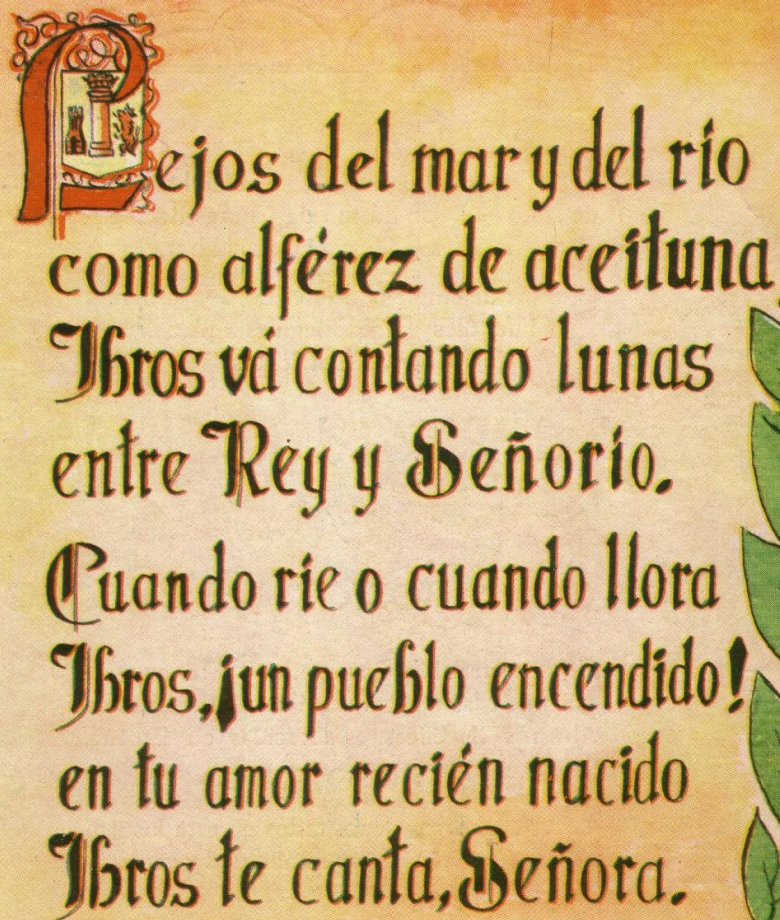 Lejos del mar y del río
como alférez de aceituna
Ibros vá contando lunas
entre Rey y Señorío.
Cuando ríe o cuando llora
Ibros, ¡un pueblo encendido!
en tu amor recién nacido
Ibros te canta, Señora.